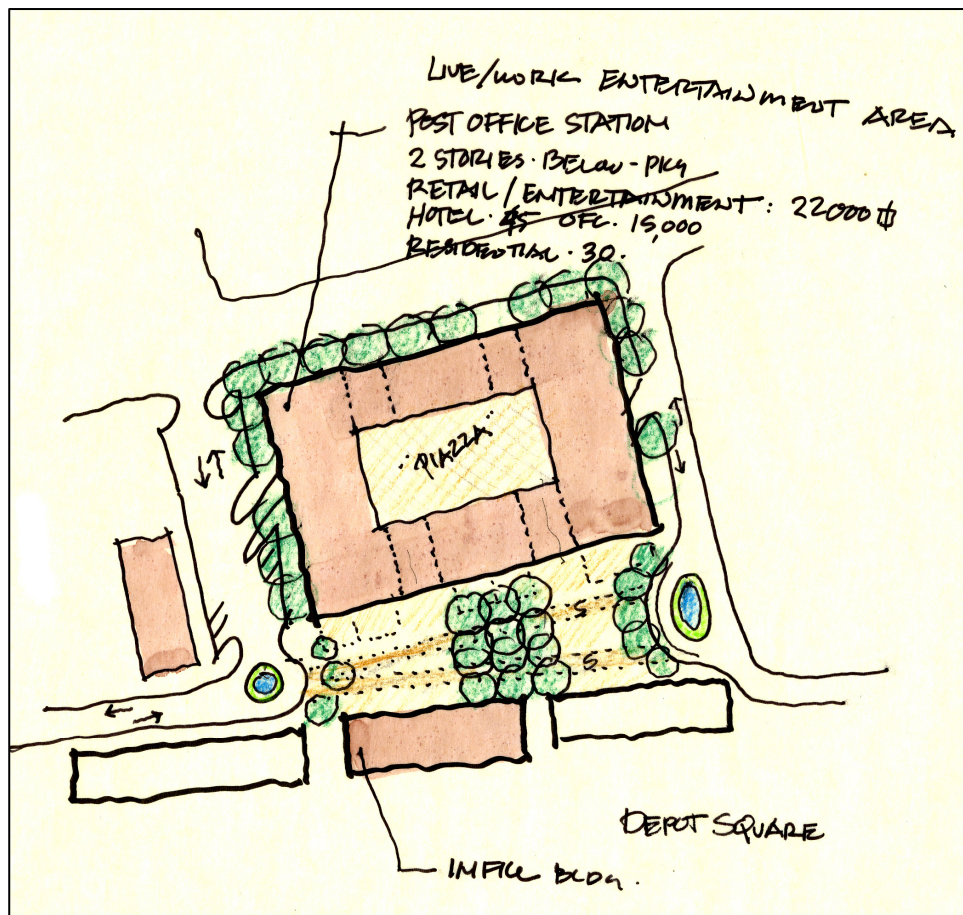 LIVE/WORK ENTERTAINMENT AREA
POST OFFICE STATION
2 STORIES · BELOW - PKG
RETAIL / ENTERTAINMENT : 22000
HOTEL · 45 OFC. 15,000
RESIDENTIAL · 30.
PIAZZA
S
S
DEPOT SQUARE
INFILL BLDG.